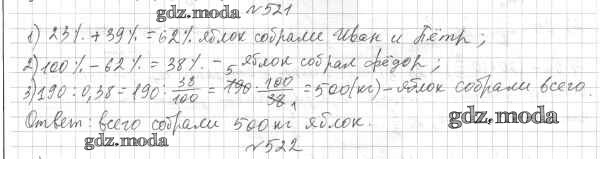 №521
gdz.moda
1) 23% + 39% = 62% яблок собрали Иван и Пётр;
2) 100% - 62% = 38% - яблок собрал Фёдор;
3) 190 : 0,38 = 190 : 38/100 = 190 5 · 100/38 1 = 500 (кг) - яблок собрали всего.
gdz.moda
Ответ: всего собрали 500 кг яблок.
gdz.moda
№522